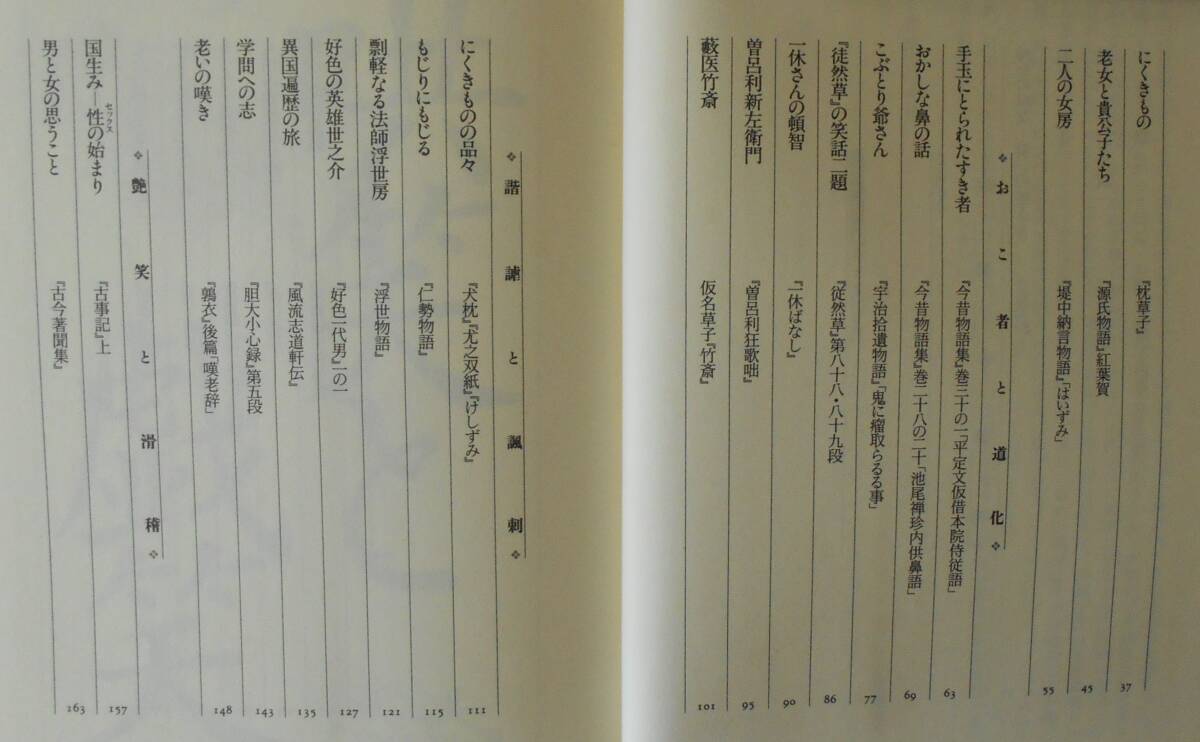 にくきもの 『枕草子』 37
老女と貴公子たち 『源氏物語』紅葉賀 45
二人の女房 『堤中納言物語』「はいずみ」 55
❖おこ者と道化❖
手玉にとられたすき者 『今昔物語集』巻三十の一「平定文仮借本院侍従語」 63
おかしな鼻の話 『今昔物語集』巻二十八の二十「池尾禅珍内供鼻語」 69
こぶとり爺さん 『宇治拾遺物語』「鬼に瘤取らるる事」 77
『徒然草』の笑話二題 『徒然草』第八十八・八十九段 86
一休さんの頓智 『一休ばなし』 90
曽呂利新左衛門 『曽呂利狂歌咄』 95
藪医竹斎 仮名草子『竹斎』 101
❖諧謔と諷刺❖
にくきものの品々 『犬枕』『尤之双紙』『けしずみ』 111
もじりにもじる 『仁勢物語』 115
剽軽なる法師浮世房 『浮世物語』 121
好色の英雄世之介 『好色一代男』一の一 127
異国遍歴の旅 『風流志道軒伝』 135
学問への志 『胆大小心録』第五段 143
老いの嘆き 『鶉衣』後篇「嘆老辞」 148
❖艶笑と滑稽❖
国生み―性の始まり 『古事記』上 157
セックス
男と女の思うこと 『古今著聞集』 163